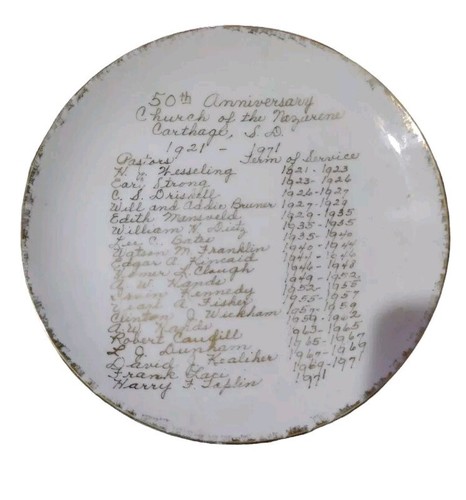 50th Anniversary
Church of the Nazarene
Carthage, S.D.
1921 - 1971
Pastors Term of Service
H. Wesseling 1921 - 1923
Earl Strong 1923 - 1926
C. S. Driskell 1926 - 1927
Will and Addie Bruner 1927 - 1929
Edith Mensveld 1929 - 1935
William H. Dietz 1935 - 1935
C. Bates 1935 - 1940
Watson M. Franklin 1940 - 1944
Edgar A. Kincaid 1944 - 1946
Elmer L. Clough 1946 - 1948
A. W. Kande 1949 - 1952
Kennedy 1952 - 1955
A. Fisher 1955 - 1957
Clinton J. Wickham 1957 - 1959
A.W. Kande 1959 - 1962
Robert Caudill 1963 - 1965
L. J. Dunham 1965 - 1967
David J. Kealiher 1967 - 1969
Frank 1969 - 1971
Harry F. Taplin 1971